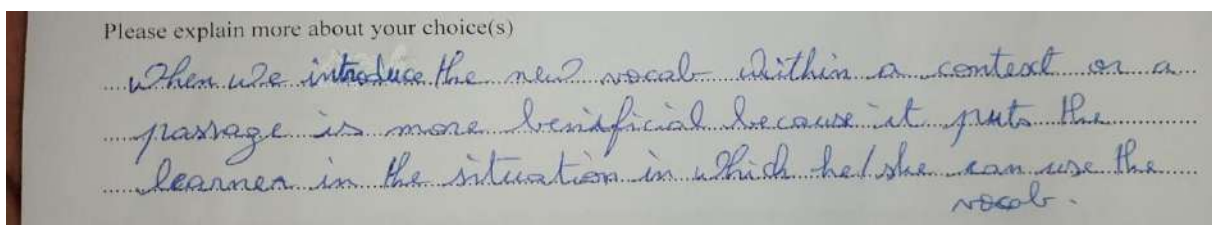 Please explain more about your choice(s)
when we introduce the new vocab within a context or a
passage is more benificial because it puts the
learner in the situation in which he/she can use the
vocab.